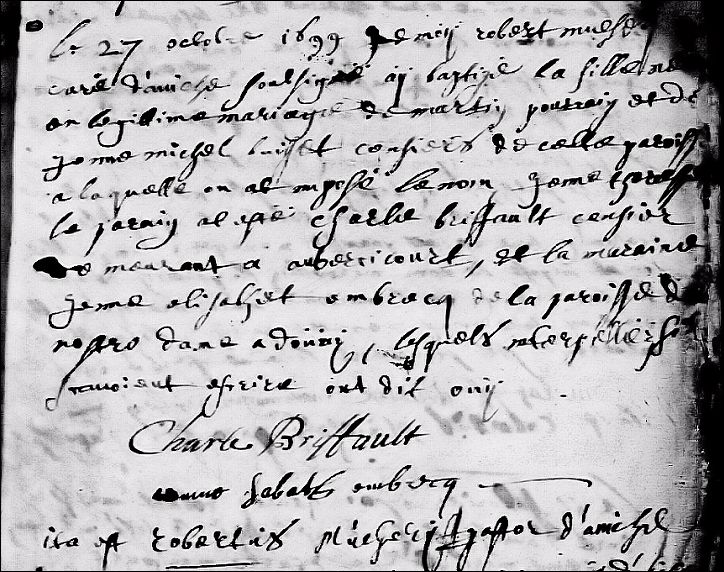 le 27 octobre 1699 Je moy robert
curé d'aniche soubsigné ay baptizé la fille née
en legittime mariage de martin poutrain et de
Jenne michel censiers de cette paroisse
a laquelle on at imposé le nom Jenne therese
le parain at esté Charle Briffault censier
demeurant a aubercicourt, et la maraine
Jenne elisabet embrecq de la paroisse de
nostre dame a douay, lesquels interpellez si
scavoient escrire ont dit ouy
Charle Briffault
embrecq
ita est robertus pastor d'aniche